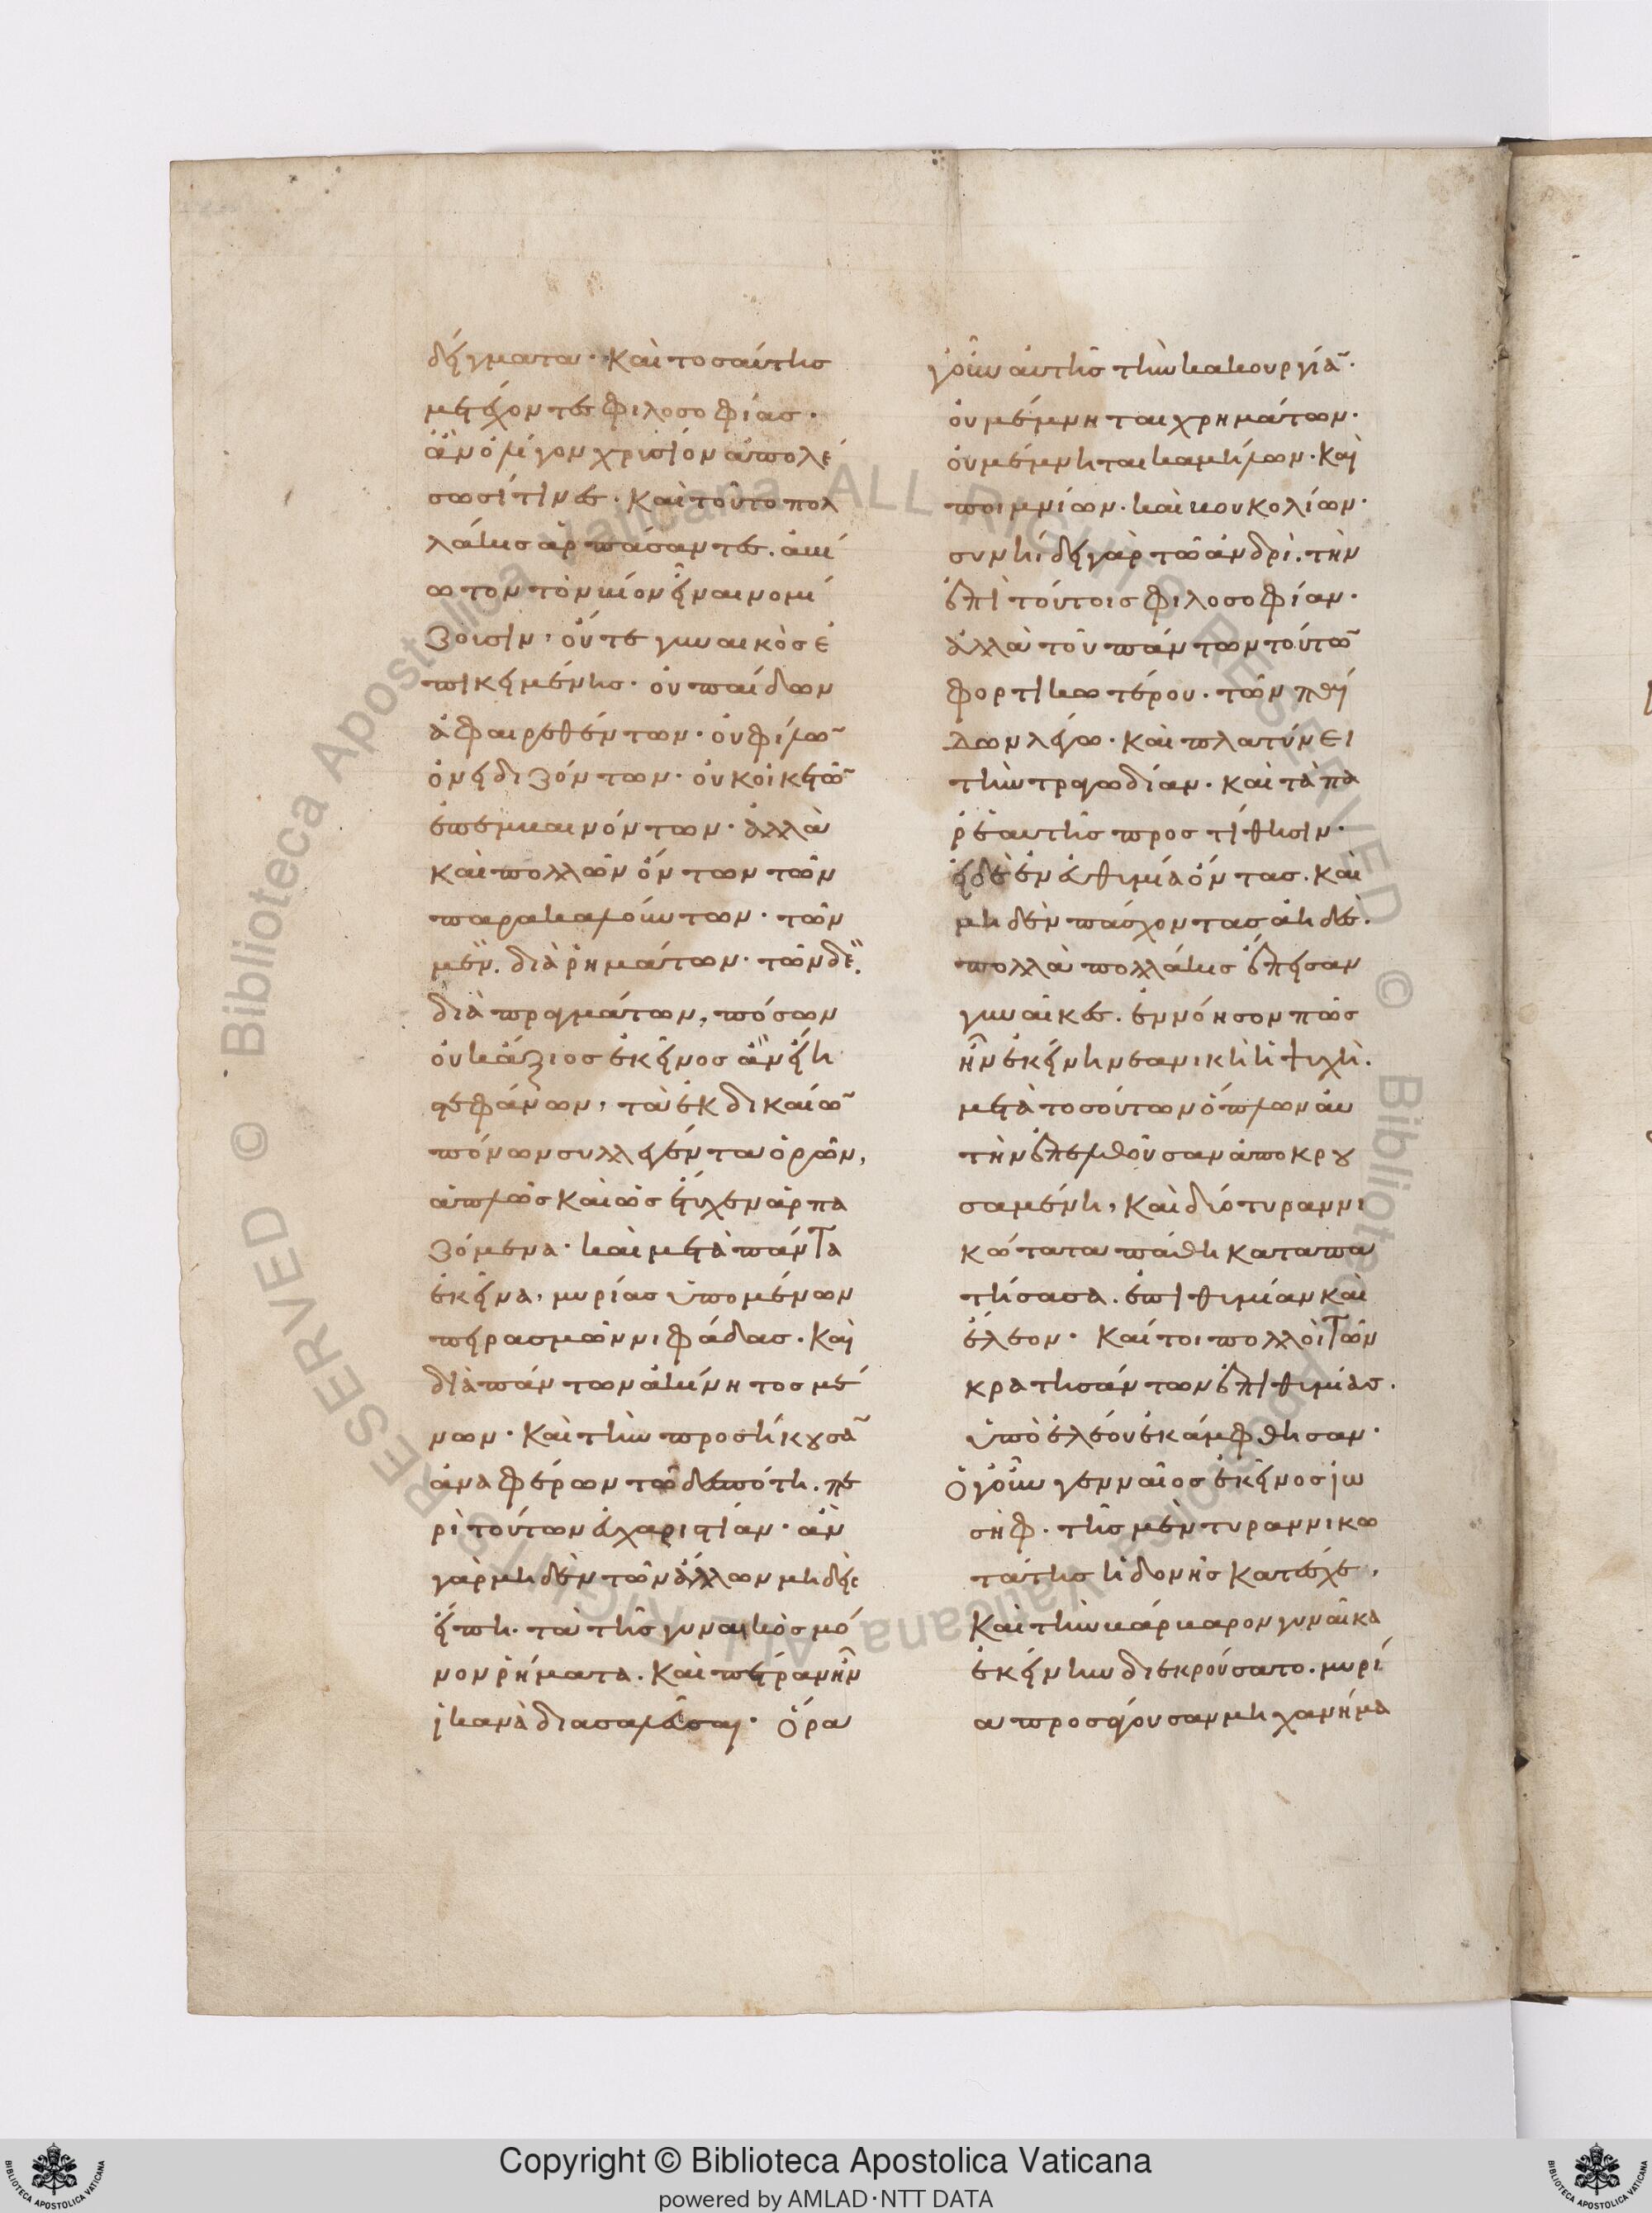 δείγματα· καὶ τοσαύτης
μετέχοντες φιλοσοφίας·
ἂν ὀλίγον χρυσίον ἀπολέ
σωσί τινες· καὶ τοῦτο πολ
λάκις ἁρπάσαντες. ἀβί
ωτον τὸν βίον εἶναι νομί
ζουσιν, οὔτε γυναικὸς ἐ
πικειμένης· οὐ παίδων
ἀφαιρεθέντων· οὐ φίλω῀
ὀνειδιζόντων· οὐκ οἰκετῶ῀
ἐπεμβαινόντων· ἀλλὰ
καὶ πολλῶν ὄντων τῶν
παρακαλούντων· τῶν
μὲν. διὰ ῥημάτων· τῶν δὲ.
διὰ πραγμάτων, πόσων
οὐκ ἄξιος ἐκεῖνος ἂν εἴη
στεφάνων, τὰ ἐκ δικαίω῀
πόνων συλλεγέντα ὁρῶν,
ἁπλῶς καὶ ὡς ἔτυχεν ἁρπα
ζόμενα· καὶ μετὰ πάντα
ἐκεῖνα, μυρίας ὑπομένων
πειρασμῶν νιφάδας· καὶ
διὰ πάντων ἀκίνητος μέ
νων· καὶ τὴν προσήκουσα῀
ἀναφέρων τῷ δεσπότη. πε
ρὶ τούτων εὐχαριστίαν· ἂν
γὰρ μηδὲν τῶν ἄλλων μηδεὶς
εἴπη· τὰ τῆς γυναικὸς μό
νον ῥήματα. καὶ πέτραν ἦν
ἱκανὰ διασαλεῦσαι· ὅρα
γοῦν αὐτῆς τὴν κακουργία῀·
οὐ μέμνηται χρημάτων·
οὐ μέμνηται καμήλων· καὶ
ποιμνίων· καὶ βουκολίων·
συνήδει γὰρ τῶ ἀνδρὶ. τὴν
ἐπὶ τούτοις φιλοσοφίαν·
ἀλλὰ τοῦ πάντων τούτω῀
φορτικωτέρου· τῶν παί
δων λέγω· καὶ πλατύνει
τὴν τραγωδίαν· καὶ τὰ πα
ρ' ἑαυτῆς προστίθησιν·
εἰ δὲ ἐν εὐθυμία ὄντας. καὶ
μηδὲν πάσχοντας ἀηδὲς.
πολλὰ πολλάκις ἔπεισαν
γυναῖκες. ἐννόησον πῶς
ἦν ἐκείνη νεανικὴ ἡ ψυχὴ.
μετὰ τοσούτων ὅπλων αὐ
τὴν ἐπελθοῦσαν ἀποκρου
σαμένη, καὶ δύο τυραννι
κώτατα πάθη καταπα
τήσασα. ἐπιθυμίαν καὶ
ἔλεον· καί τοι πολλοὶ τῶν
κρατησάντων ἐπιθυμίας.
ὑπὸ ἐλέου ἐκάμφθησαν·
ὁ γοῦν γενναῖος ἐκεῖνος ἰω
σὴφ. τῆς μὲν τυραννικω
τάτης ἡδονῆς κατέσχε,
καὶ τὴν βάρβαρον γυναῖκα
ἐκείνην διεκρούσατο. μυρί
α προσάγουσαν μηχανήμα